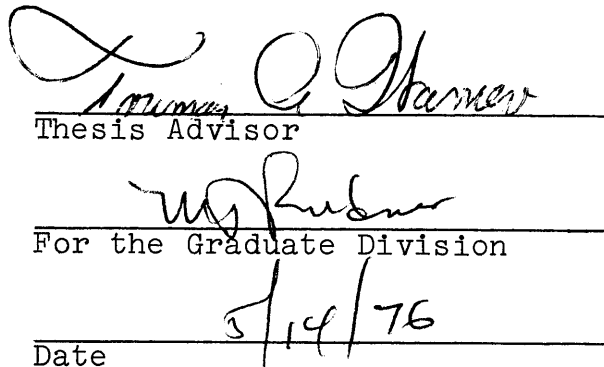 Truman G
Thesis Advisor
For the Graduate Division
5/14/76
Date